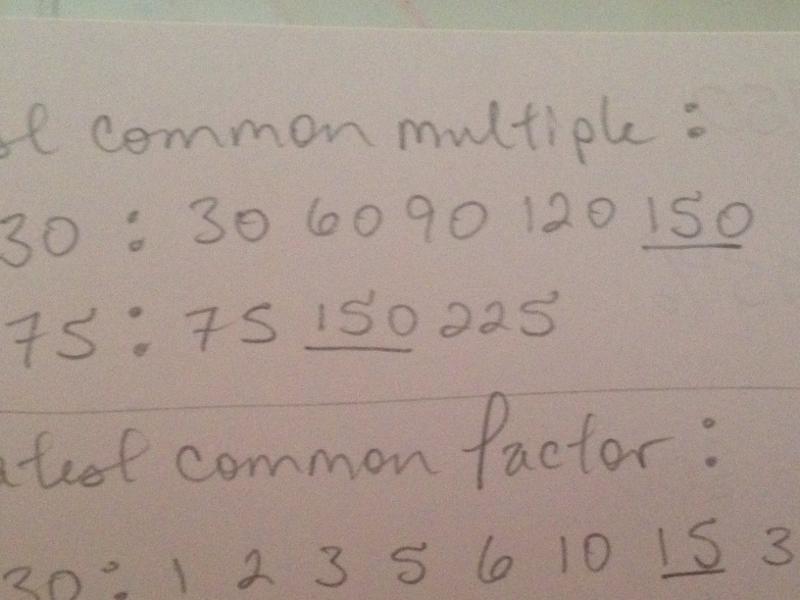 common multiple :
30 : 30 60 90 120 150
75 : 75 150 225
common factor :
30 : 1 2 3 5 6 10 15 3